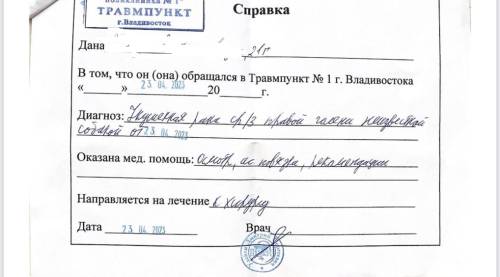 поликлиника № 1"
ТРАВМПУНКТ
г.Владивосток
Справка
Дана 21г
В том, что он (она) обращался в Травмпункт № 1 г. Владивостока
«______» 23 04. 2023 20______г.
Диагноз: Укушенная рана ср/з правой голени неизвестной
собакой от 23 04. 2023
Оказана мед. помощь: Осмотр, ас повязка, рекомендации
Направляется на лечение к хирургу
Дата 23 04. 2023 Врач